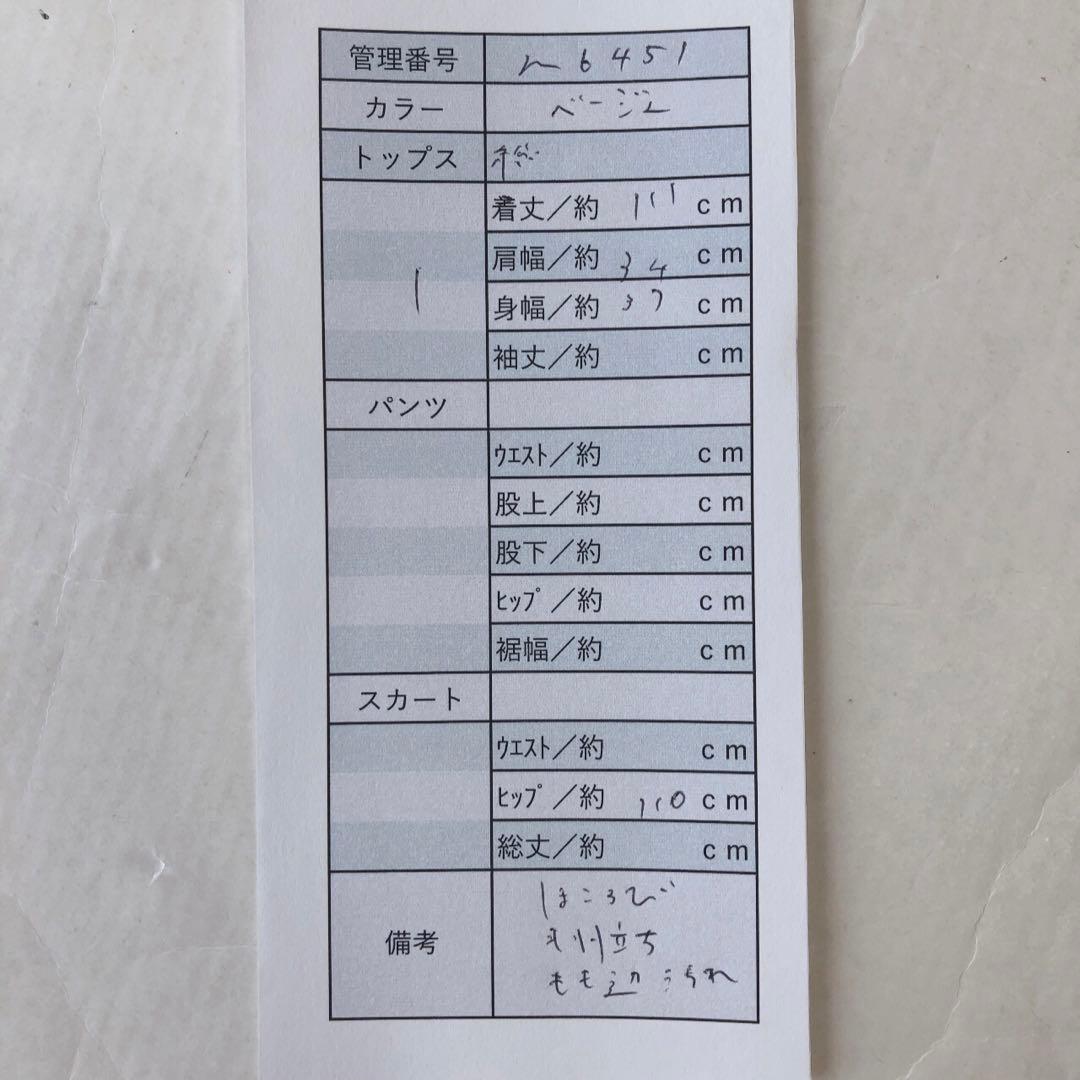 管理番号 n6451
カラー ベージュ
トップス 総
1
着丈／約 111 cm
肩幅／約 34 cm
身幅／約 37 cm
袖丈／約 cm
パンツ
ｳｴｽﾄ／約 cm
股上／約 cm
股下／約 cm
ﾋｯﾌﾟ／約 cm
裾幅／約 cm
スカート
ｳｴｽﾄ／約 cm
ﾋｯﾌﾟ／約 110 cm
総丈／約 cm
備考
ほころび
毛羽立ち
もも辺 汚れ